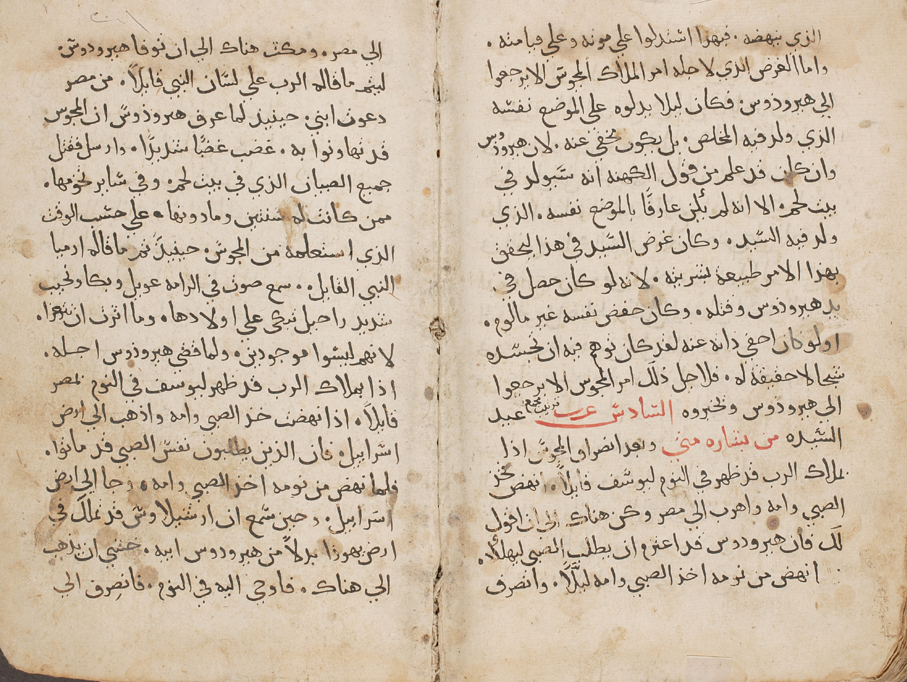 الذي ينهضه . فبهذا استدلوا على موته وعلى قيامته .
واما الغرض الذي لاجله امر الملاك المجوس الا يرجعوا
الي هيرودوس . فكان ليلا يدلوه على الموضع نفسه
الذي ولد فيه المخلص . بل يكون مخفي عنه . لان هيرودوس
وان كان قد علم من قول الكهنه انه سيولد في
بيت لحم . الا انه لم يكن عارفا بالموضع نفسه . الذي
ولد فيه السيد . وكان غرض السيد في هذا ليحقق
بهذا الامر طبيعة بشريته . لانه لو كان حصل في
يد هيرودوس وقتله . وكان حفض نفسه غير مالوم .
اولو كان اخفي ذاته عنه لقد كان توهم فيه ان تجسده
شيا لا حقيقة له . فلاجل ذلك امر المجوس الا يرجعوا
الي هيرودوس ويخبروه السادس عربي عيد
السيده من بشاره متي وبعد انصراف المجوس اذا
بملاك الرب قد ظهر في النوم ليوسف قايلا . انهض خذ
الصبي وامه واهرب الي مصر وكن هناك الي ان اقول
لك فان هيرودوس قد اعتزم ان يطلب الصبي ليهلكه .
انهض من نومه اخذ الصبي وامه ليلًا . وانصرف
الي مصر . ومكث هناك الي ان توفا هيرودوس
ليتم ما قاله الرب على لسان النبي قايلاً . من مصر
دعوت ابني . حينيذ لما عرف هيرودوس ان المجوس
قد تهاونوا به . غضب غضبًا شديدًا . وارسل فقتل
جميع الصبيان الذي في بيت لحم . وفي ساير تخومها .
ممن كانت له سنتين وما دونها . على حسب الوقت
الذي استعلمه من المجوس . حينيذ تم ما قاله ارميا
النبي القايل . سمع صوت في الرامه عويل وبكا ونحيب
شديد راحيل تبكي علي اولادها . وما اثرت ان تتعزا .
لانهم ليسوا موجودين . ولما قضي هيرودس اجله .
اذا بملاك الرب قد ظهر ليوسف في النوم بمصر
قايلًا . اذا نهضت خذ الصبي وامه واذهب الي ارض
اسراييل . فان الذين يطلبون نفس الصبي قد ماتوا .
فلما نهض من نومه اخذ الصبي وامه . وجا الي ارض
اسراييل . وحين سمع ان ارشيلاوش قد تملك في
ارض يهوذا بدلاً من هيرودوس ابيه . خشي ان يذهب
الي هناك . فاوحي اليه في النوم . فانصرف الي